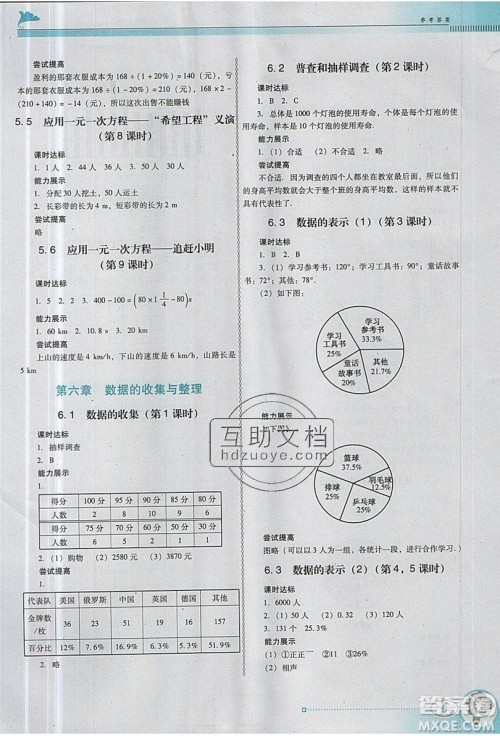 参考答案
尝试提高
盈利的那套衣服成本为 168÷(1+20%)=140(元),
210+14-0)=-14(元),所以这次出售不能赚钱
5.5 应用一元一次方程——“希望工程”义演
(第8课时)
课时达标
1. 1人 2. 44人 3. 36人 4. 50人 5. 30人
能力展示
1. 分配30人挖土,50人运土
2. 长彩带的长为4m,短彩带的长为2m
尝试提高
略
5.6 应用一元一次方程——追赶小明
(第9课时)
课时达标
1. 5 2. 2 3. 400-100=(80×1 1/4-80)s
能力展示
1. 60 km 2. 10.8 s 3. 20 km
尝试提高
上山的速度是4 km/h,下山的速度是6 km/h,山路长是
5 km
第六章 数据的收集与整理
6.1 数据的收集(第1课时)
课时达标
1. 抽样调查
能力展示
1.
得分 100分 95分 90分 85分 80分
人数 2 8 9 8 6
得分 75分 70分 65分 60分 55分
人数 6 4 3 2 2
2. (1)购物 (2)2580元 (3)3870元
尝试提高
1.
代表队 美国 俄罗斯 中国 英国 其他
金牌数/枚 36 23 51 19 157
百分比 12% 7.6% 16.9% 6.3% 51.9%
2. 略
6.2 普查和抽样调查(第2课时)
课时达标
1. B 2. C
3. 总体是1000个灯泡的使用寿命,个体是每个灯泡的使
用寿命,样本是10个灯泡的使用寿命.
能力展示
1. (1)合适 (2)不合适 2. 略
尝试提高
不合适. 因为调查的四个人都坐在教室最后面,所以他们的
身高平均数就会大于整个班的身高平均数,这样的样本就不
具有代表性
6.3 数据的表示(1)(第3课时)
课时达标
1. B 2. B
3. (1)学习参考书:120°;学习工具书:90°;童话故事
书:72°;其他:78°.
(2)如下图:
学习参考书 33.3%
学习工具书 25%
童话故事书 20%
其他 21.7%
能力展示
如下图
篮球 37.5%
羽毛球 12.5%
排球 25%
乒乓球 25%
尝试提高
图略(可以2人为一组,各统计一段,进行合作学习.)
6.3 数据的表示(2)(第4,5课时)
课时达标
1. 6000人
2. (1)50 (2)0.12 (3)120人
3. 131个 25. 33%
能力展示
(1)①正正一 ②略
(2)相声
互助文档
hdzuoye.com
答案圈
MXQE.COM